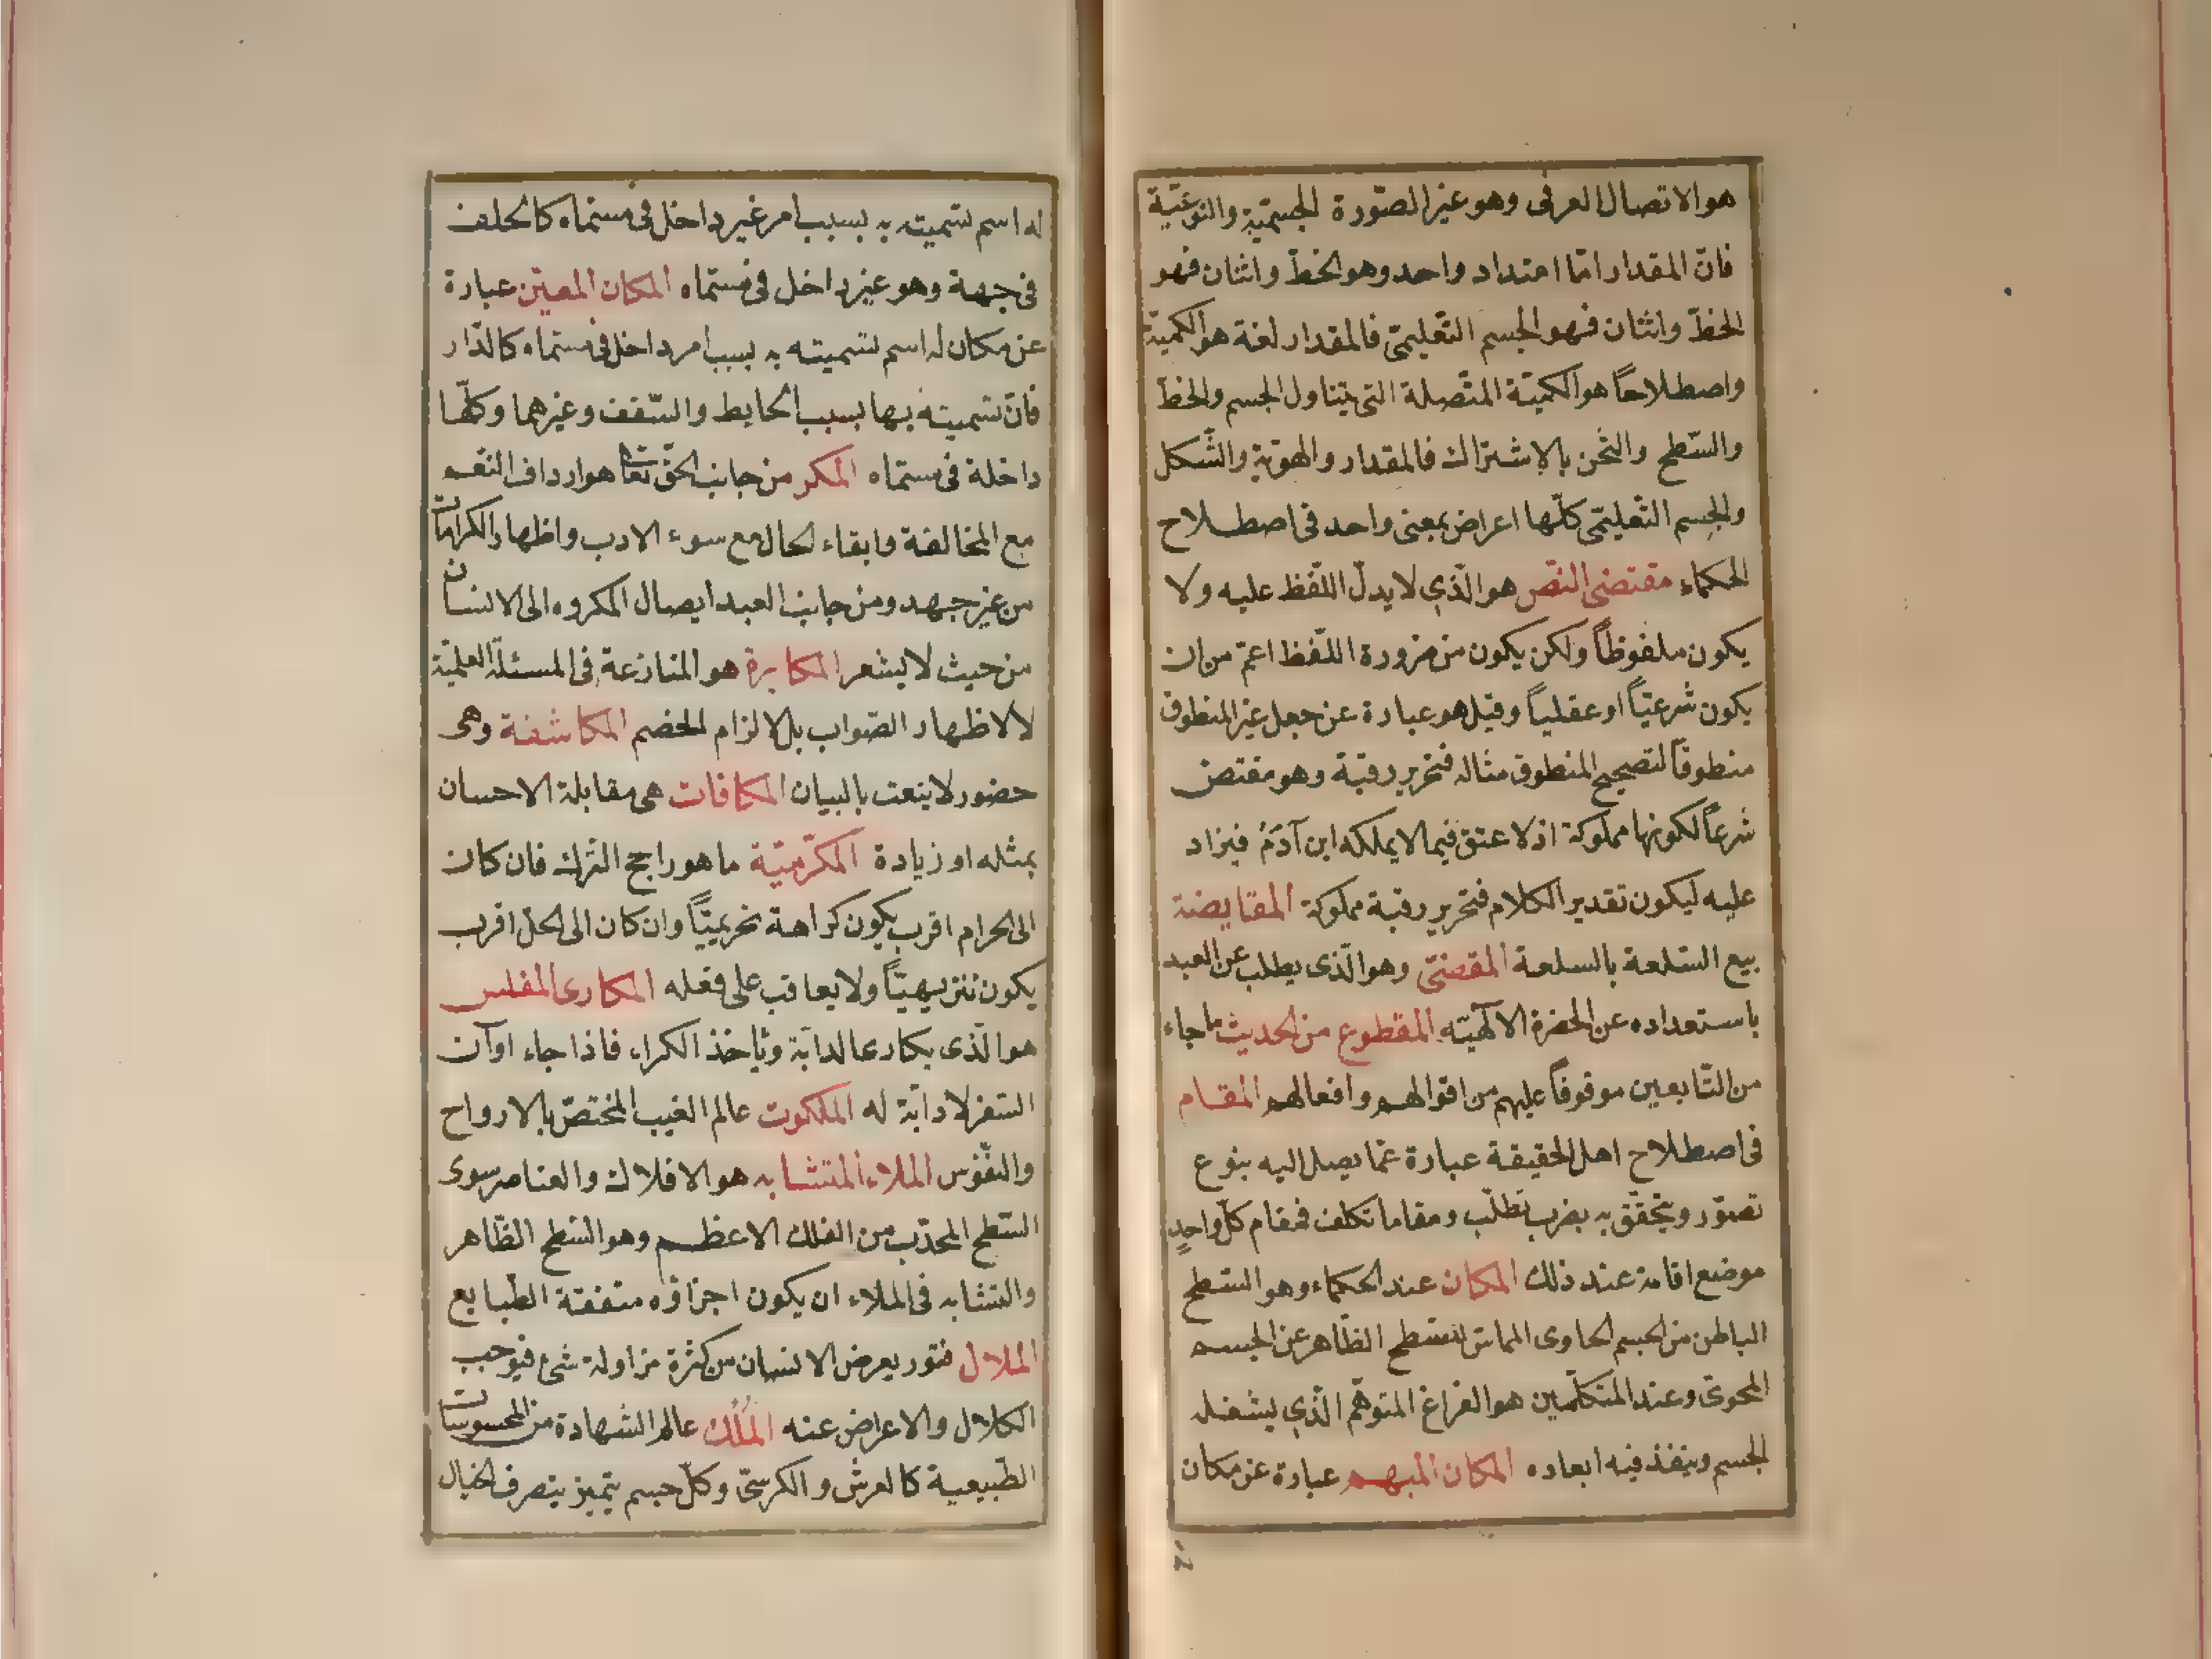 هو الاتصال العرفى وهو غير الصّورة الجسميّة والنوعيّة
فانّ المقدار امّا امتداد واحد وهو الخطّ واثنان فهو
الخطّ واثنان فهو الجسم التّعليمىّ فالمقدار لغة هو الكميّة
واصطلاحاً هو الكميّة المتّصلة التى يتناول الجسم والخطّ
والسّطح والثّخن بالاشتراك فالمقدار والهويّة والشّكل
والجسم التّعليمى كلّها اعراض بمعنى واحد فى اصطلاح
الحكماء مقتضى النّصّ هو الّذى لا يدلّ اللّفظ عليه ولا
يكون ملفوظاً ولكن يكون من ضرورة اللّفظ اعمّ من ان
يكون شرعيّاً او عقليّاً وقيل هو عبارة عن جعل غير المنطوق
منطوقاً لتصحيح المنطوق مثاله فتحرير رقبة وهو مقتض
شرعاً لكونها مملوكة اذ لا عتق فيما لا يملكه ابن آدم فيزاد
عليه ليكون تقدير الكلام فتحرير رقبة مملوكة المقايضة
بيع السّلعة بالسلعة المقضىّ وهو الّذى يطلب عن العبد
باستعداده عن الحضرة الالٓهيّه المقطوع من الحديث ما جاء
من التّابعين موقوفاً عليهم من اقوالهم وافعالهم المقام
فى اصطلاح اهل الحقيقة عبارة عمّا يصل اليه بنوع
تصوّر ويتحقّق به بضرب تطلّب ومقاما تكلف فمقام كلّ واحدٍ
موضع اقامة عند ذلك المكان عند الحكماء وهو السّطح
الباطن من الجسم الحاوى المماسّ للسّطح الظّاهر عن الجسم
المحوىّ وعند المتكلّمين هو الفراغ المتوهّم الّذى يشغله
الجسم وينفذ فيه ابعاده المكان المبهم عبارة عن مكان
له اسم تسميته به بسبب امر غير داخل فى مسمّاه كالخلف
فى جهة وهو غير داخل فى مسمّاه المكان المعيّن عبارة
عن مكان له اسم تسميته به بسبب امر داخل فى مسمّاه كالدّار
فانّ تسميته بها بسبب الحايط والسّقف وغيرهما وكلّها
داخلة فى مسمّاه المكر من جانب الحقّ تعا هو ارداف النّعم
مع المخالفة وابقاء الحال مع سوء الادب واظهار الكرامات
من غير جهد ومن جانب العبد ايصال المكروه الى الانسان
من حيث لا يشعر المكابرة هو المنازعة فى المسئلة العلميّة
لا لاظهار الصّواب بل لالزام الخصم المكاشفة وهى
حضور لا ينعت بالبيان المكافات هى مقابلة الاحسان
بمثله او زيادة المكرميّة ما هو راجح التّرك فان كان
الى الحرام اقرب يكون كراهة تحريميّاً وان كان الى الحلّ اقرب
يكون تنزيهيّاً ولا يعاقب على فعله المكارى المفلس
هو الّذى يكارى الدابّة ويأخذ الكراء فاذا جاء اوآن
السّفر لا دابّة له الملكوت عالم الغيب المختصّ بالارواح
والنّفوس الملاء المتشابه هو الافلاك والعناصر سوى
السّطح المحدّب من الفلك الاعظم وهو السّطح الظّاهر
والتّشابه فى الملاء ان يكون اجزاؤه متفقة الطّبايع
الملال فتور يعرض الانسان من كثرة مزاولة شىء فيوجب
الكلال والاعراض عنه المُلك عالم الشّهادة من المحسوسات
الطّبيعية كالعرش والكرسىّ وكلّ جسم يتميز بتصرف الخيال